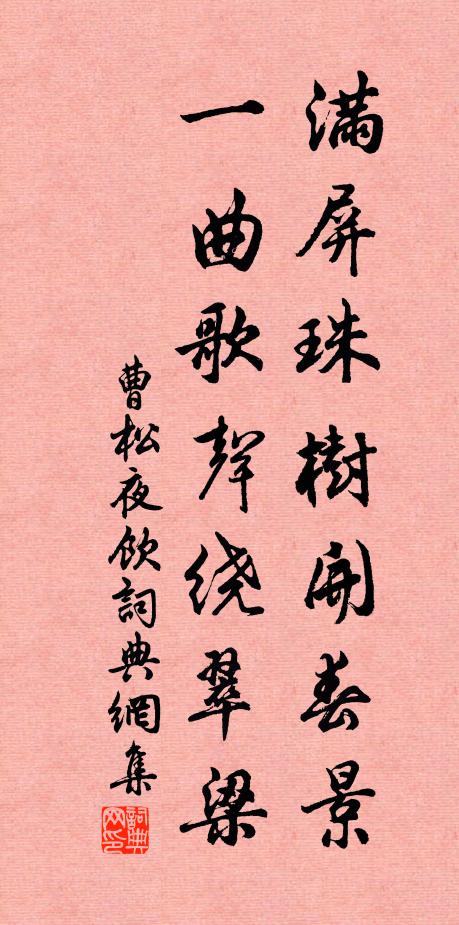 满屏珠樹開春景
一曲歌聲绕翠梁
曹松夜飲詞典網集
詞典网印